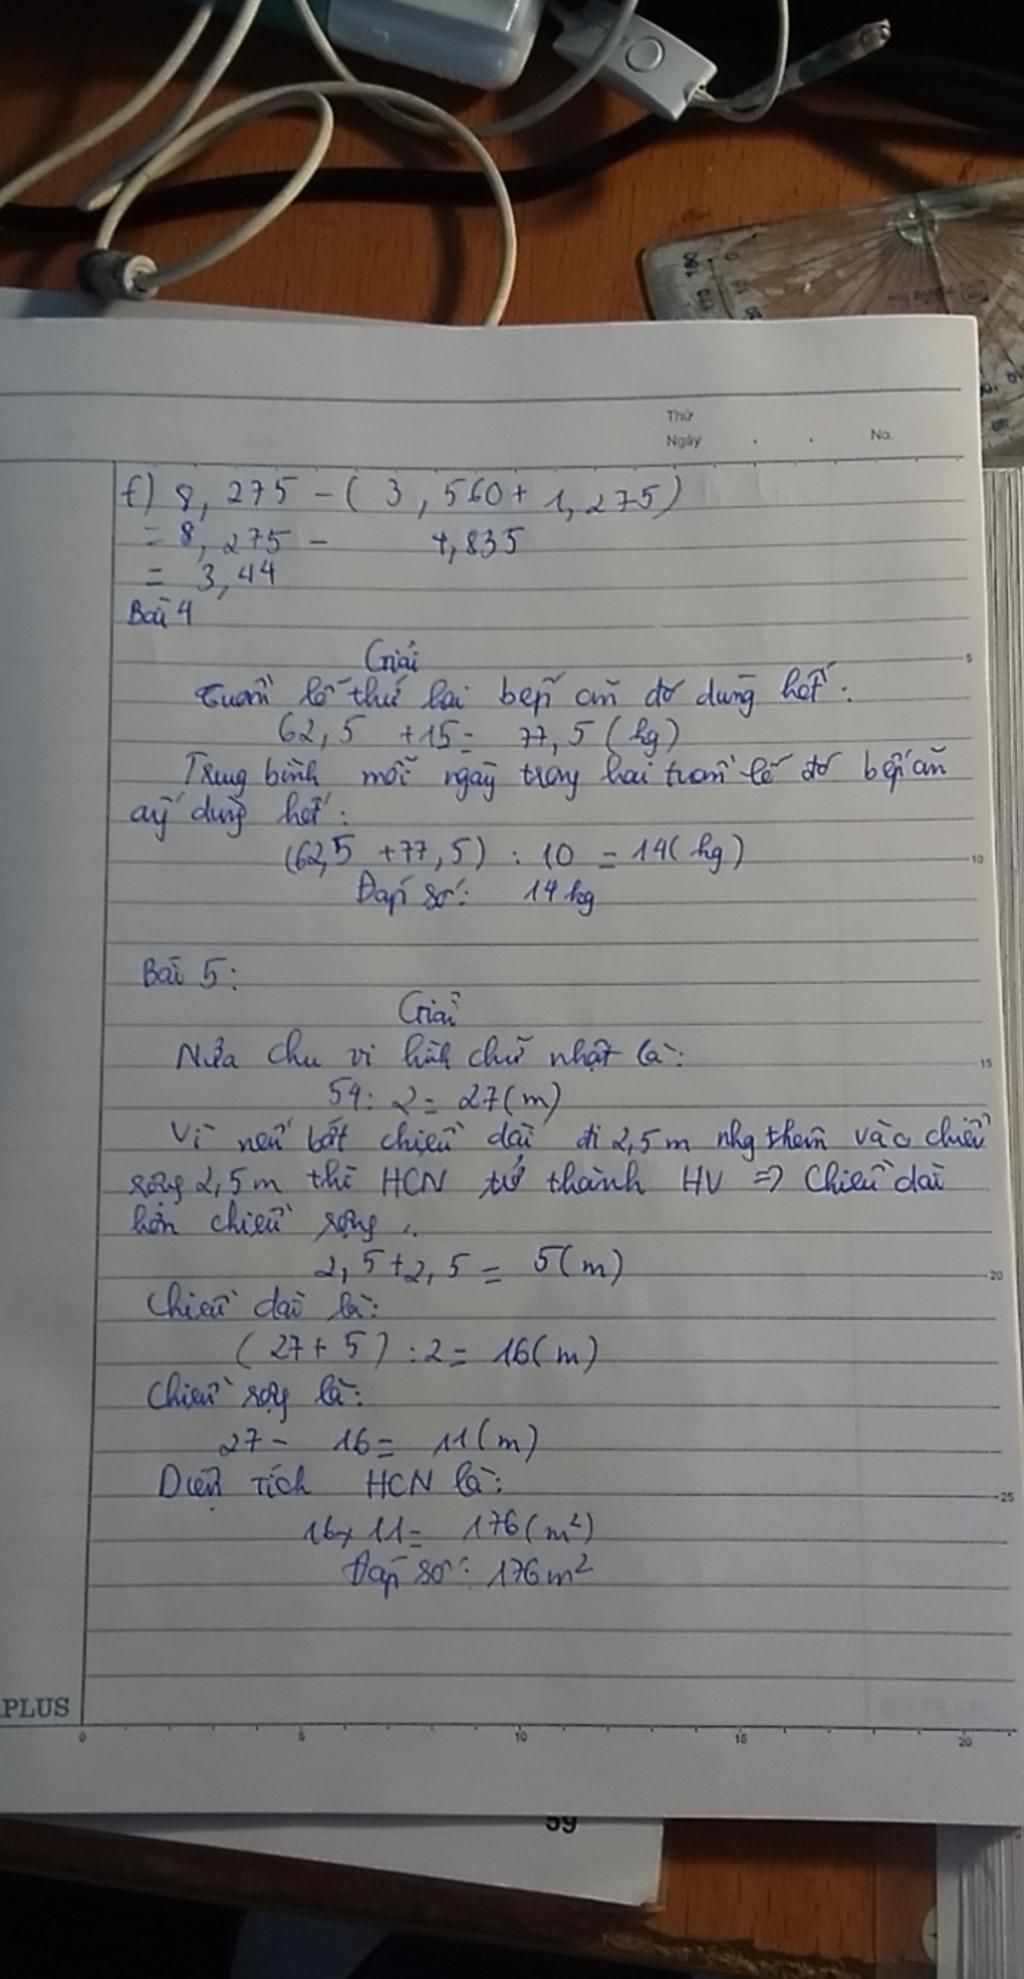 Thứ
Ngày . . No.
f) 8,275 - ( 3,560 + 1,275 )
= 8,275 - 4,835
= 3,44
Bài 4
Giải
Tuần lễ thứ hai bếp ăn đó dùng hết:
62,5 + 15 = 77,5 (kg)
Trung bình mỗi ngày trong hai tuần lễ đó bếp ăn
ấy dùng hết:
(62,5 + 77,5) : 10 = 14 (kg)
Đáp số: 14 kg
Bài 5:
Giải
Nửa chu vi hình chữ nhật là:
54 : 2 = 27 (m)
Vì nếu bớt chiều dài đi 2,5 m nhg thêm vào chiều
rộng 2,5 m thì HCN trở thành HV => Chiều dài
hơn chiều rộng :
2,5 + 2,5 = 5 (m)
Chiều dài là:
(27 + 5) : 2 = 16 (m)
Chiều rộng là:
27 - 16 = 11 (m)
Diện tích HCN là:
16 x 11 = 176 (m²)
Đáp số: 176 m²
PLUS
0 5 10 15 20
59